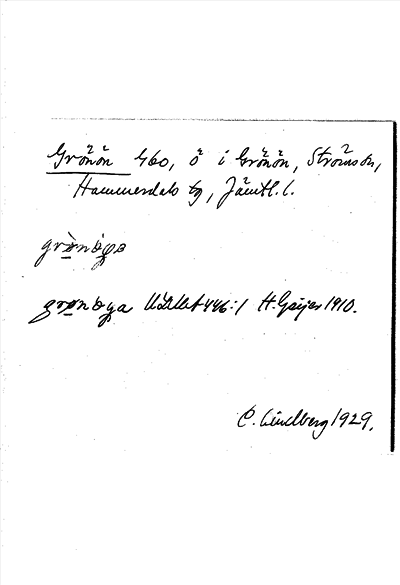 Grönön 460, ö i Grönön, Strömsön,
Hammerdals tg, Jämtl. l.
grønöga
grønöga 446:1 H. Geijer 1910.
C. Lindberg 1929.